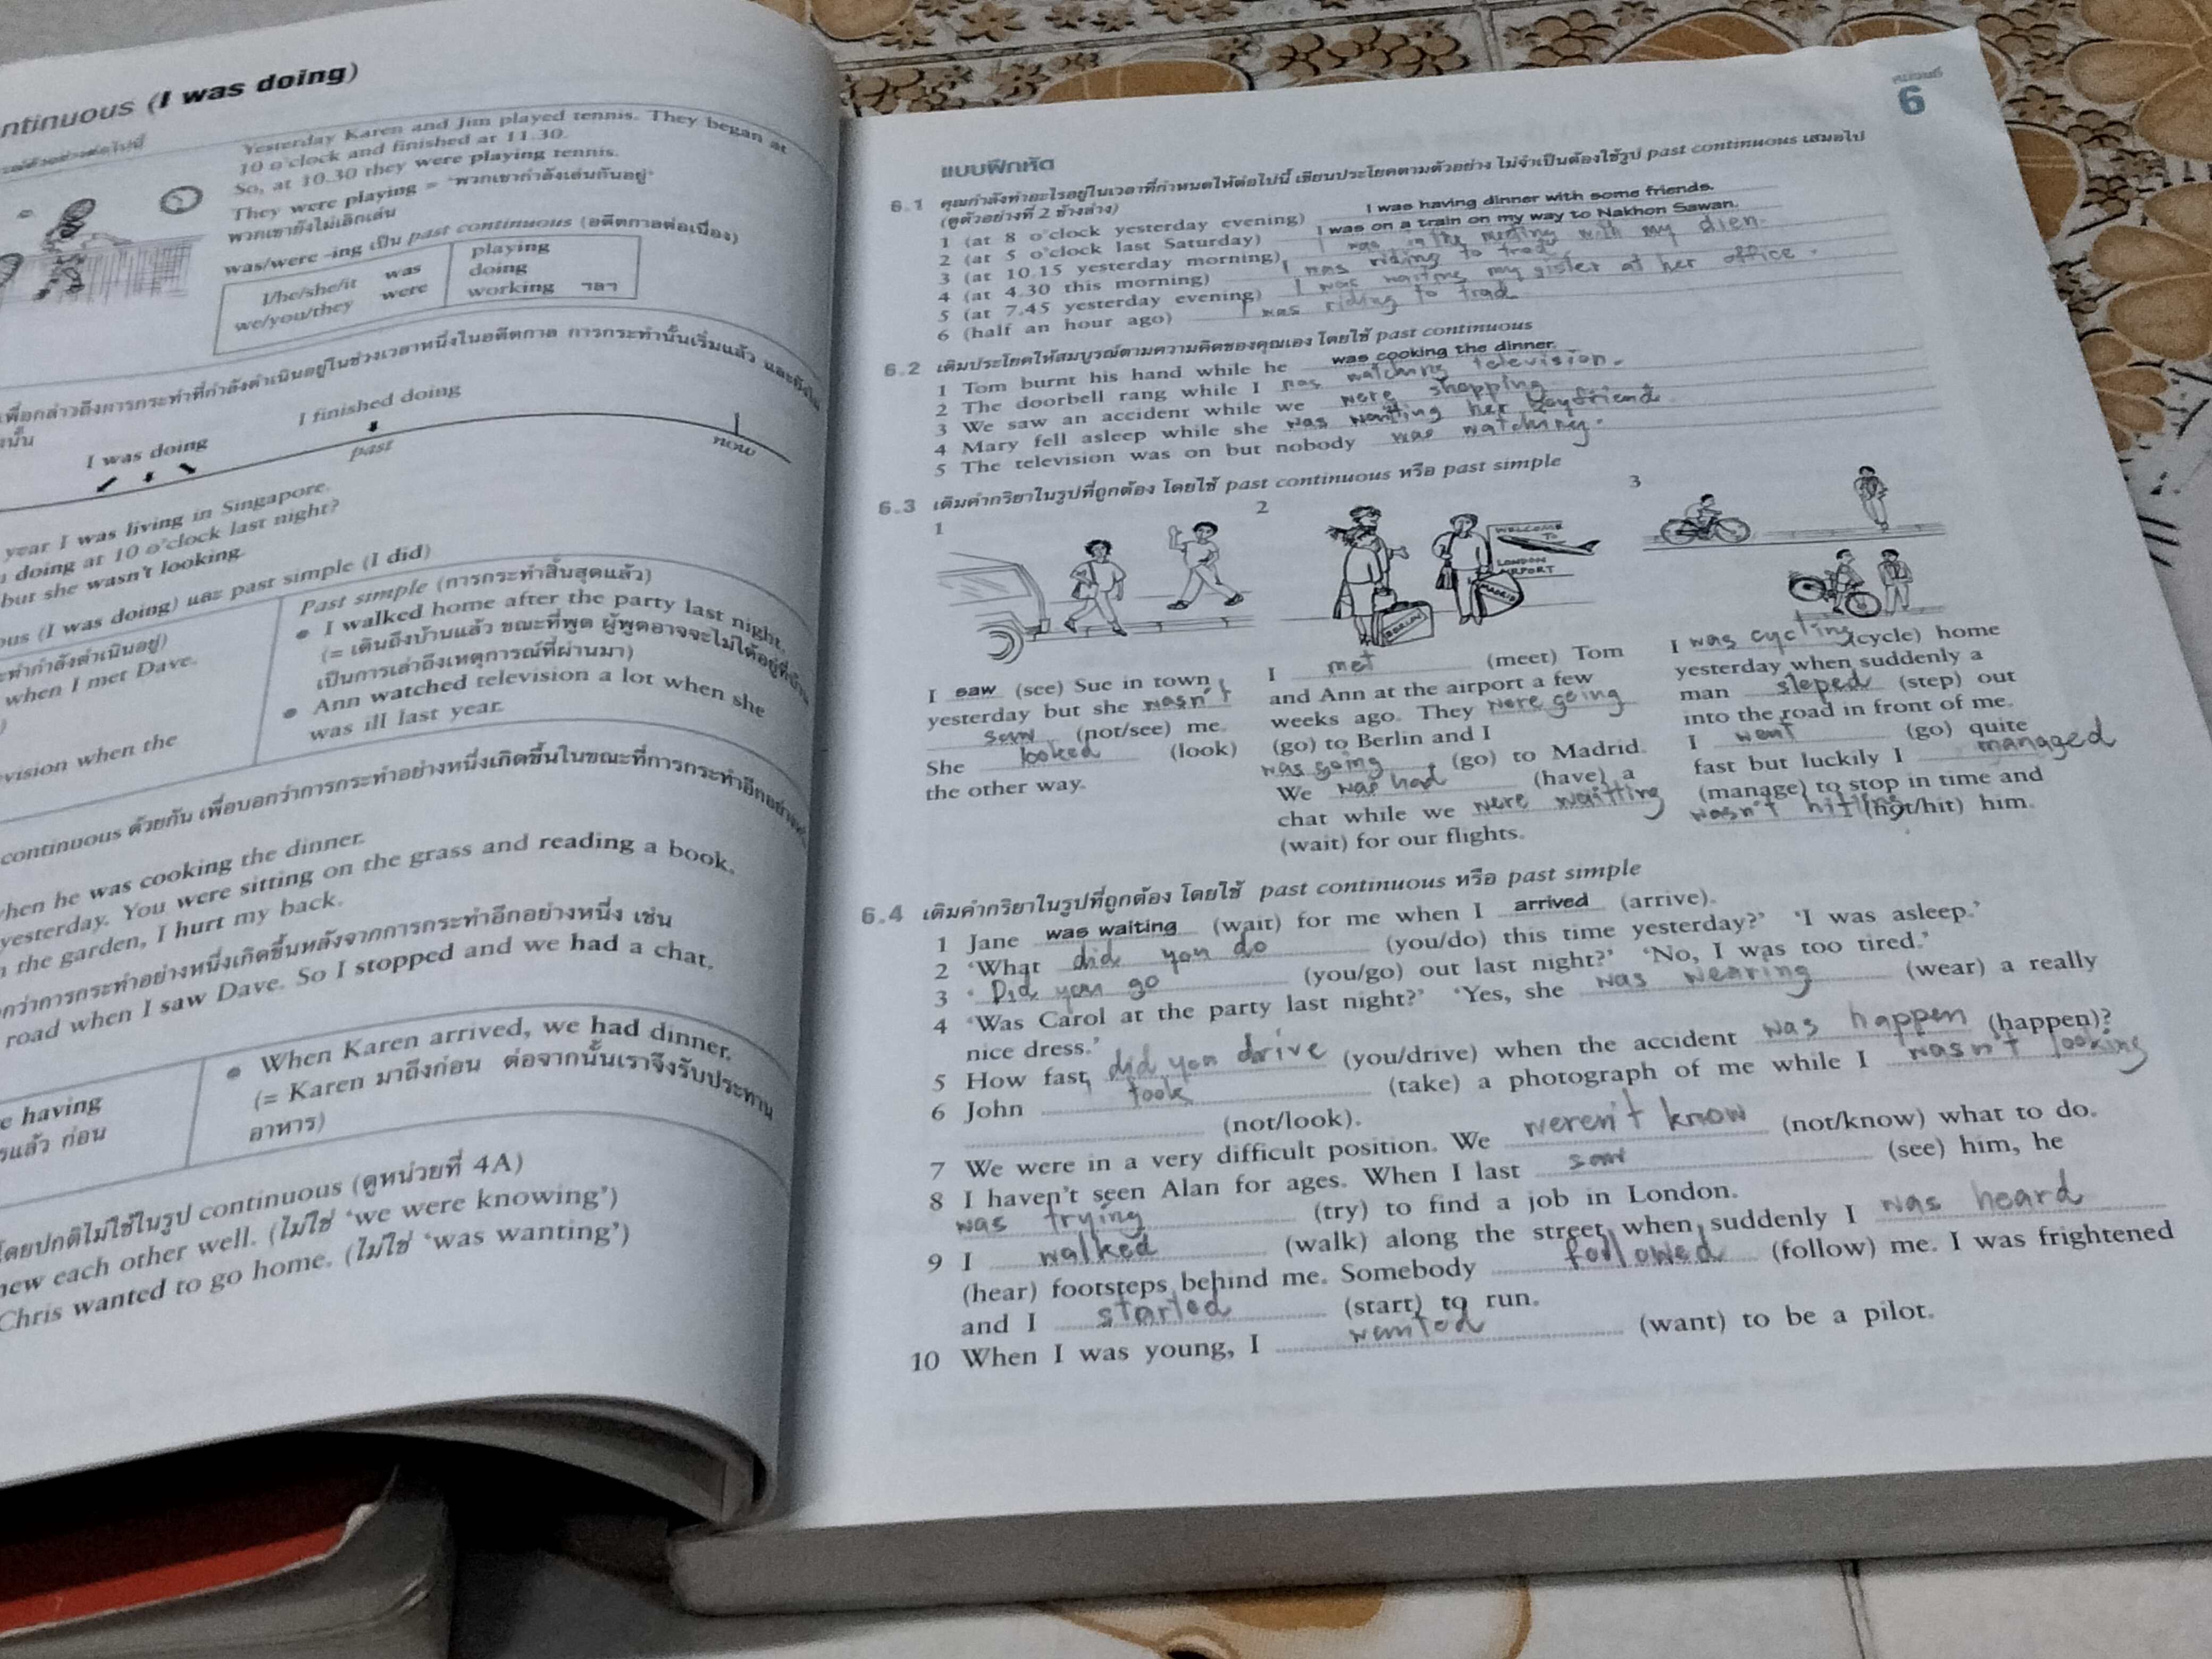 ntinuous (I was doing)
Yesterday Karen and Jim played tennis. They began at
10 o'clock and finished at 11.30.
So, at 10.30 they were playing tennis.
They were playing = 'พวกเขากำลังเล่นกันอยู่'
พวกเขายังไม่เลิกเล่น
was/were -ing เป็น past continuous (อดีตกาลต่อเนื่อง)
I/he/she/it was playing
we/you/they were doing
working ฯลฯ
เพื่อกล่าวถึงการกระทำที่กำลังดำเนินอยู่ในช่วงเวลาหนึ่งในอดีตกาล การกระทำนั้นเริ่มแล้ว และยังไม่
I was doing I finished doing
past now
year I was living in Singapore.
doing at 10 o'clock last night?
but she wasn't looking.
ous (I was doing) และ past simple (I did)
Past simple (การกระทำสิ้นสุดแล้ว)
• I walked home after the party last night.
(= เดินถึงบ้านแล้ว ขณะที่พูด ผู้พูดอาจจะไม่ได้อยู่ที่บ้าน
เป็นการเล่าถึงเหตุการณ์ที่ผ่านมา)
• Ann watched television a lot when she
was ill last year.
when I met Dave.
vision when the
continuous ด้วยกัน เพื่อบอกว่าการกระทำอย่างหนึ่งเกิดขึ้นในขณะที่การกระทำอีกอย่าง
when he was cooking the dinner.
yesterday. You were sitting on the grass and reading a book.
the garden, I hurt my back.
กว่าการกระทำอย่างหนึ่งเกิดขึ้นหลังจากการกระทำอีกอย่างหนึ่ง เช่น
road when I saw Dave. So I stopped and we had a chat.
• When Karen arrived, we had dinner.
(= Karen มาถึงก่อน ต่อจากนั้นเราจึงรับประทาน
อาหาร)
e having
แล้ว ก่อน
โดยปกติไม่ใช้ในรูป continuous (ดูหน่วยที่ 4A)
new each other well. (ไม่ใช่ 'we were knowing')
Chris wanted to go home. (ไม่ใช่ 'was wanting')
หน่วยที่
6
แบบฝึกหัด
6.1 คุณกำลังทำอะไรอยู่ในเวลาที่กำหนดให้ต่อไปนี้ เขียนประโยคตามตัวอย่าง ไม่จำเป็นต้องใช้รูป past continuous เสมอไป
(ดูตัวอย่างที่ 2 ข้างล่าง)
1 (at 8 o'clock yesterday evening) I was having dinner with some friends.
2 (at 5 o'clock last Saturday) I was on a train on my way to Nakhon Sawan.
3 (at 10.15 yesterday morning) I was in the meeting with my dien.
4 (at 4.30 this morning) I was riding to trad
5 (at 7.45 yesterday evening) I was waiting my sister at her office.
6 (half an hour ago) I was riding to trad
6.2 เติมประโยคให้สมบูรณ์ตามความคิดของคุณเอง โดยใช้ past continuous
1 Tom burnt his hand while he was cooking the dinner.
2 The doorbell rang while I was watching television.
3 We saw an accident while we were shopping
4 Mary fell asleep while she was waitting her boyfriend
5 The television was on but nobody was watching.
6.3 เติมคำกริยาในรูปที่ถูกต้อง โดยใช้ past continuous หรือ past simple
1 2 3
WELCOME TO LONDON AIRPORT
BERLIN
MADRID
I saw (see) Sue in town
yesterday but she wasn't
saw (not/see) me.
She looked (look)
the other way.
I met (meet) Tom
and Ann at the airport a few
weeks ago. They were going
(go) to Berlin and I
was going (go) to Madrid.
We was had (have) a
chat while we were waitting
(wait) for our flights.
I was cycling (cycle) home
yesterday when suddenly a
man steped (step) out
into the road in front of me.
I went (go) quite
fast but luckily I managed
(manage) to stop in time and
wasn't hitting (not/hit) him.
6.4 เติมคำกริยาในรูปที่ถูกต้อง โดยใช้ past continuous หรือ past simple
1 Jane was waiting (wait) for me when I arrived (arrive).
2 'What did you do (you/do) this time yesterday?' 'I was asleep.'
3 'Did you go (you/go) out last night?' 'No, I was too tired.'
4 'Was Carol at the party last night?' 'Yes, she was wearing (wear) a really
nice dress.'
5 How fast did you drive (you/drive) when the accident was happen (happen)?
6 John took (take) a photograph of me while I wasn't looking
(not/look).
7 We were in a very difficult position. We weren't know (not/know) what to do.
8 I haven't seen Alan for ages. When I last saw (see) him, he
was trying (try) to find a job in London.
9 I walked (walk) along the street when suddenly I was heard
(hear) footsteps behind me. Somebody followed (follow) me. I was frightened
and I started (start) to run.
10 When I was young, I wanted (want) to be a pilot.